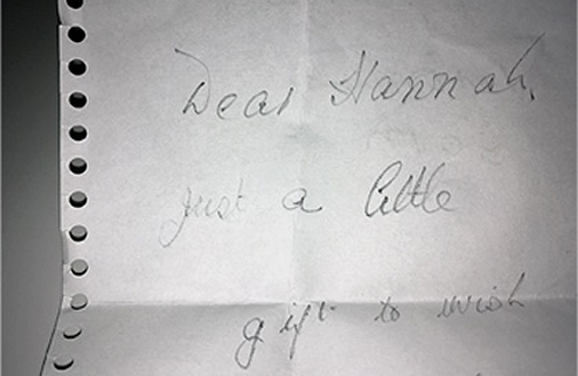 Dear Hannah,
just a little
gift to wish